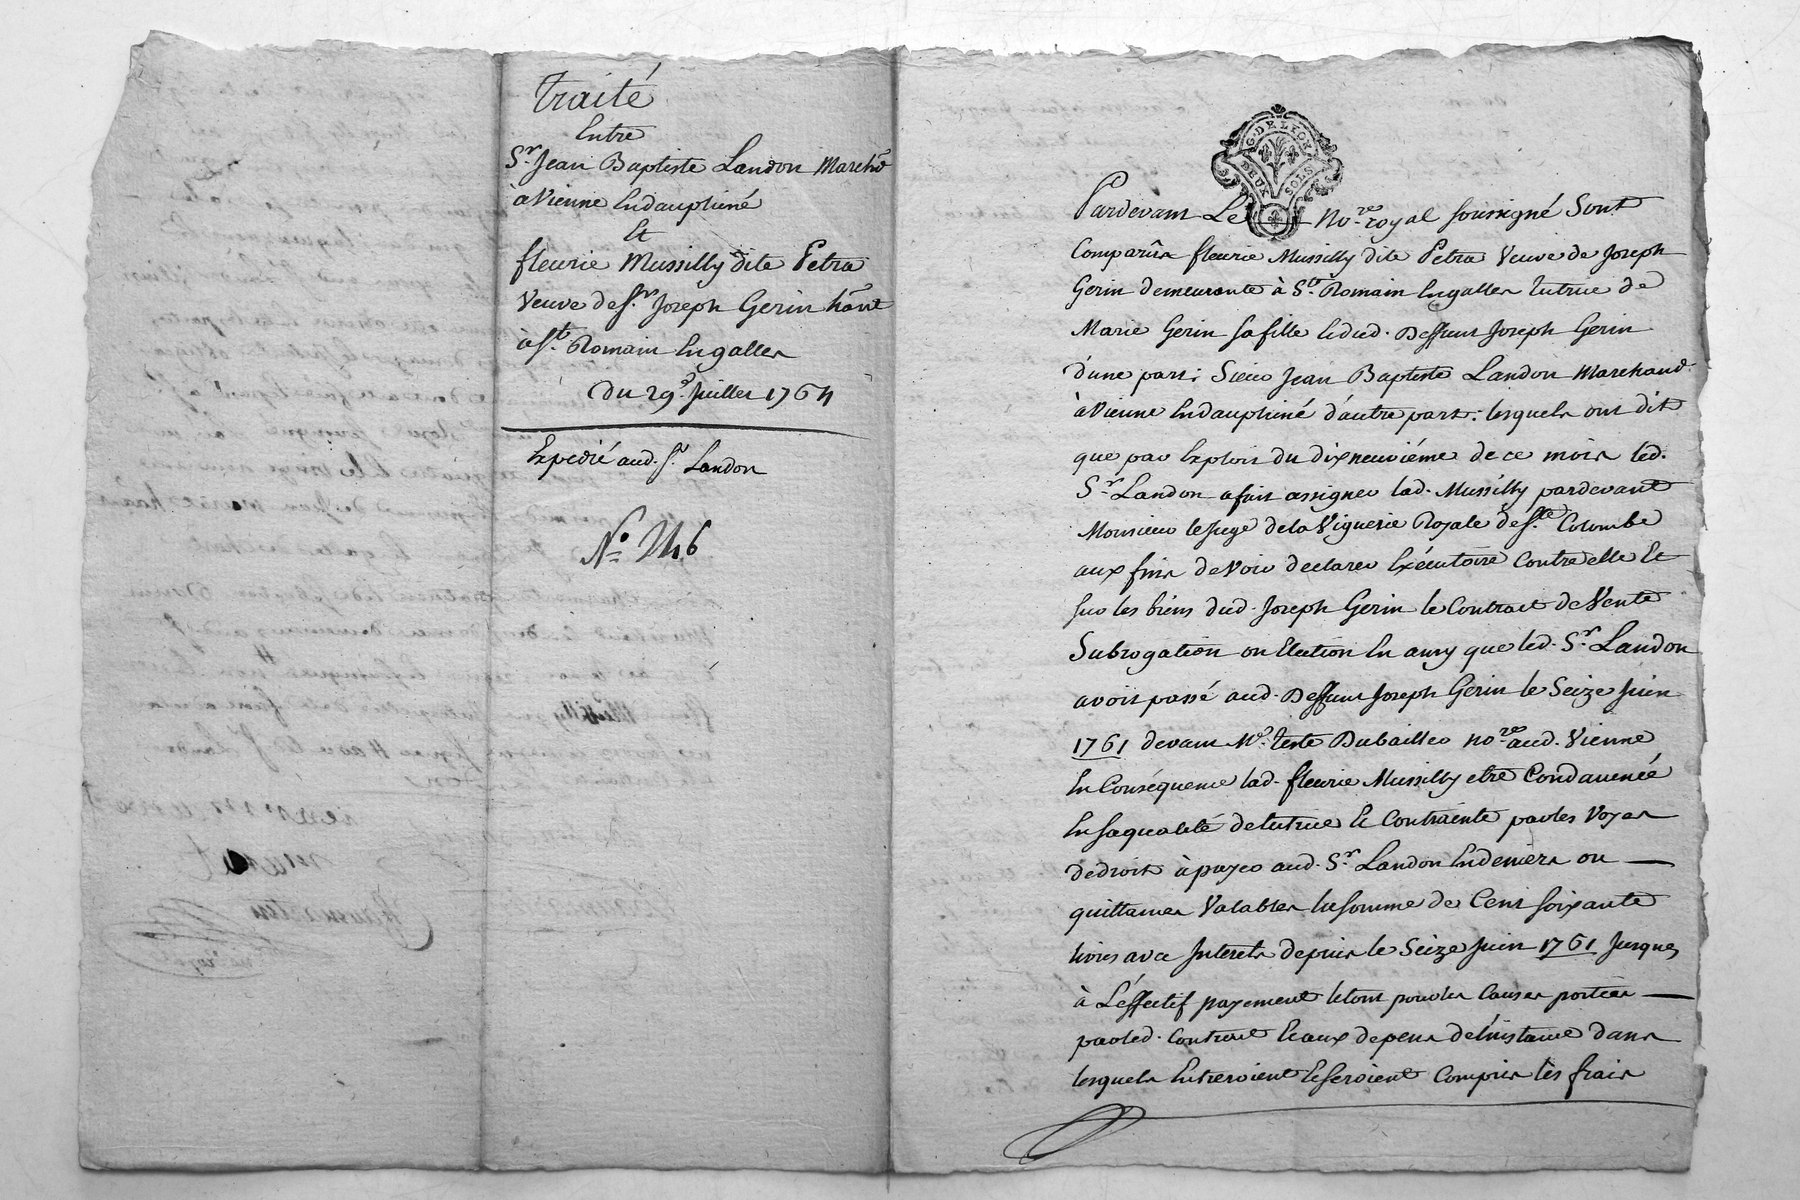 Traité
Entre
Sr. Jean Baptiste Landon Marchd
à Vienne Endauphiné
Et
fleurie Mussilly dite Petra
Veuve de sr. Joseph Gerin hānt
à st. Romain Engaller
Du 29e. Juillet 1764
Expedié aud. sr. Landon
No. 246
G. DE LYON
DEUX SOLS
Pardevant Le No.re royal soussigné Sont
Comparûs fleurie Mussilly dite Petra Veuve de Joseph
Gerin demeurante à St. Romain Engaller tutrice de
Marie Gerin sa fille Eidud. Deffunt Joseph Gerin
d'une part; Sieur Jean Baptiste Landon Marchand
à Vienne Endauphiné d'autre part; lesquels ont dit
que par Exploit du dixneuviéme de ce mois led.
Sr. Landon a fait assigner lad. Mussilly pardevant
Monsieur le Juge de la Viguerie Royale de ste. Colombe
aux fins de Voir declarer Exécutoire Contre elle Et
sur les biens dud. Joseph Gerin le Contrat de Vente
Subrogation ou Election En amy que led. Sr. Landon
avoit passé aud. Deffunt Joseph Gerin le Seize Juin
1761 devant Me. teste Dubailler no.re aud. Vienne
En Conséquence lad. fleurie Mussilly etre Condamnée
En sa qualité de tutrice Et Contrainte par les Voyes
de droit à payer aud. Sr. Landon En deniers ou
quittances Valables la somme de Cent soixante
livres avec Interets depuis le Seize Juin 1761 Jusques
à L'éffectif payement le tout pour les Causes portées
par led. Contrat Et aux depens de l'instance dans
lesquels Entreroient Et seroient Compris les frais